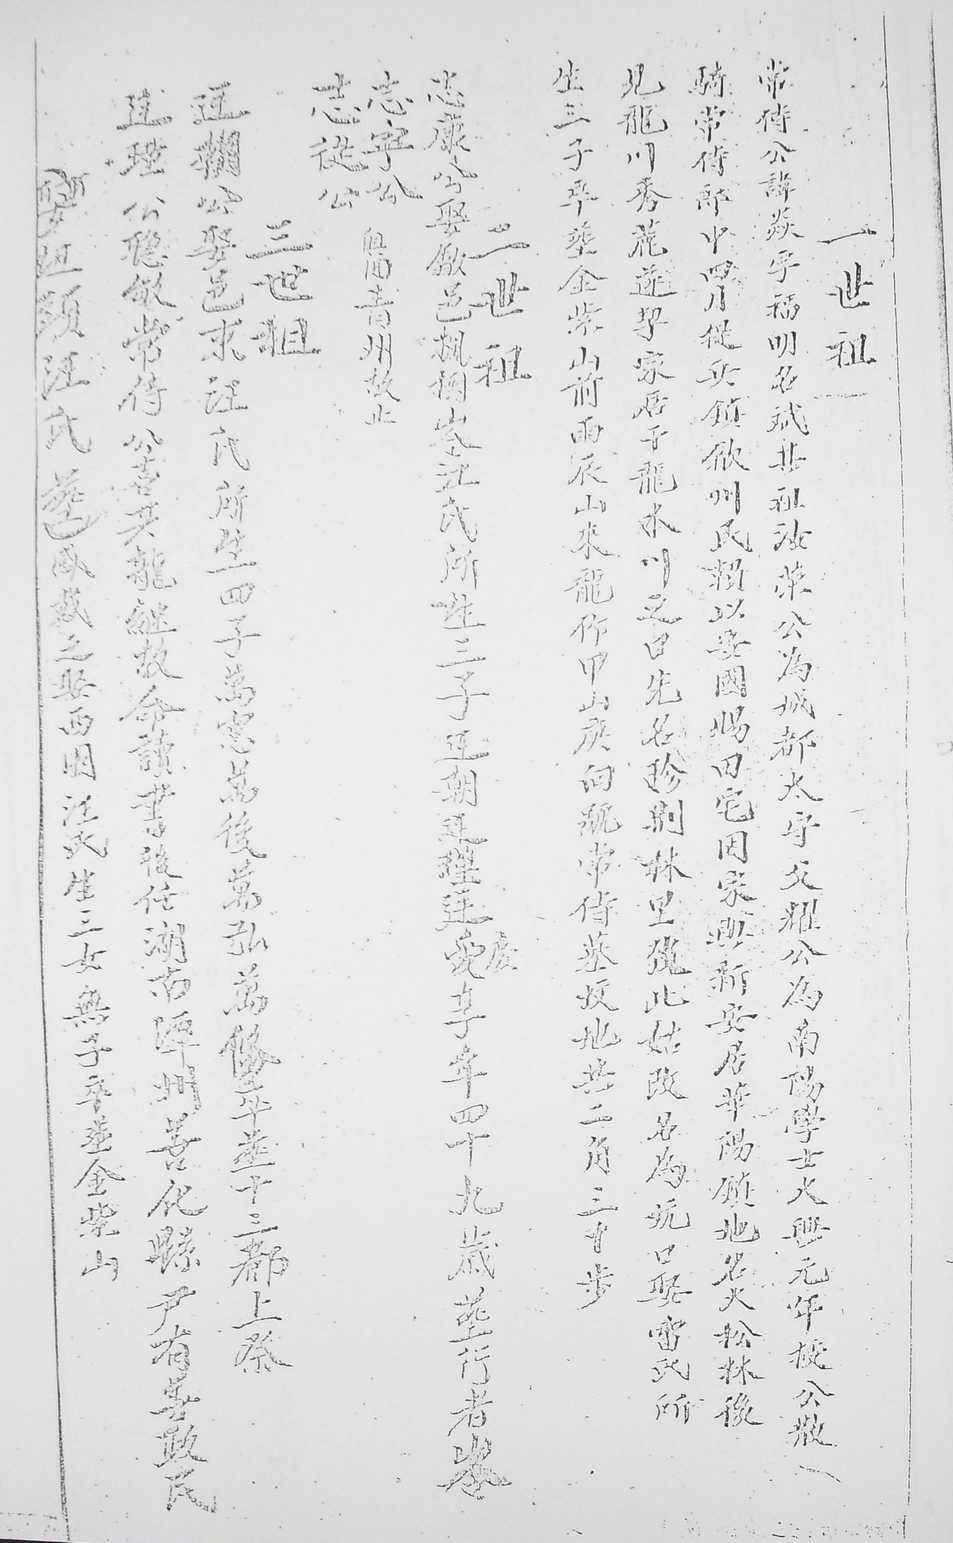 一世祖
常侍公諱炎字福明名斌其祖汝榮公為城都太守父耀公為南陽學士大興元年授公散
騎常侍郎中四月從安鎮歙州民賴以安國賜田宅因家興新安居華陽鎮地名火松林後
見龍川秀麗遂挈家居于龍水川之口先名珍荆林里獲此姑改名為坑口娶雷氏所
生三子卒葬金紫山前面辰山來龍作甲山庚向號常侍墓墳地共二角三十步
二世祖
志康公娶歙邑楓樹嵗汪氏所生三子廷朝廷理廷慶享年四十九歲葬行者嶺
志寧公
志從公 青州故止
三世祖
廷朝公娶邑東汪氏所生四子萬憲萬後萬弘萬傑卒葬十三都上祭
廷理公聰敏常侍公喜其能繼故命讀書後任湖南潭州善化縣尹有善政民
汪氏 葬 之娶西園汪氏生三女無子卒葬金紫山